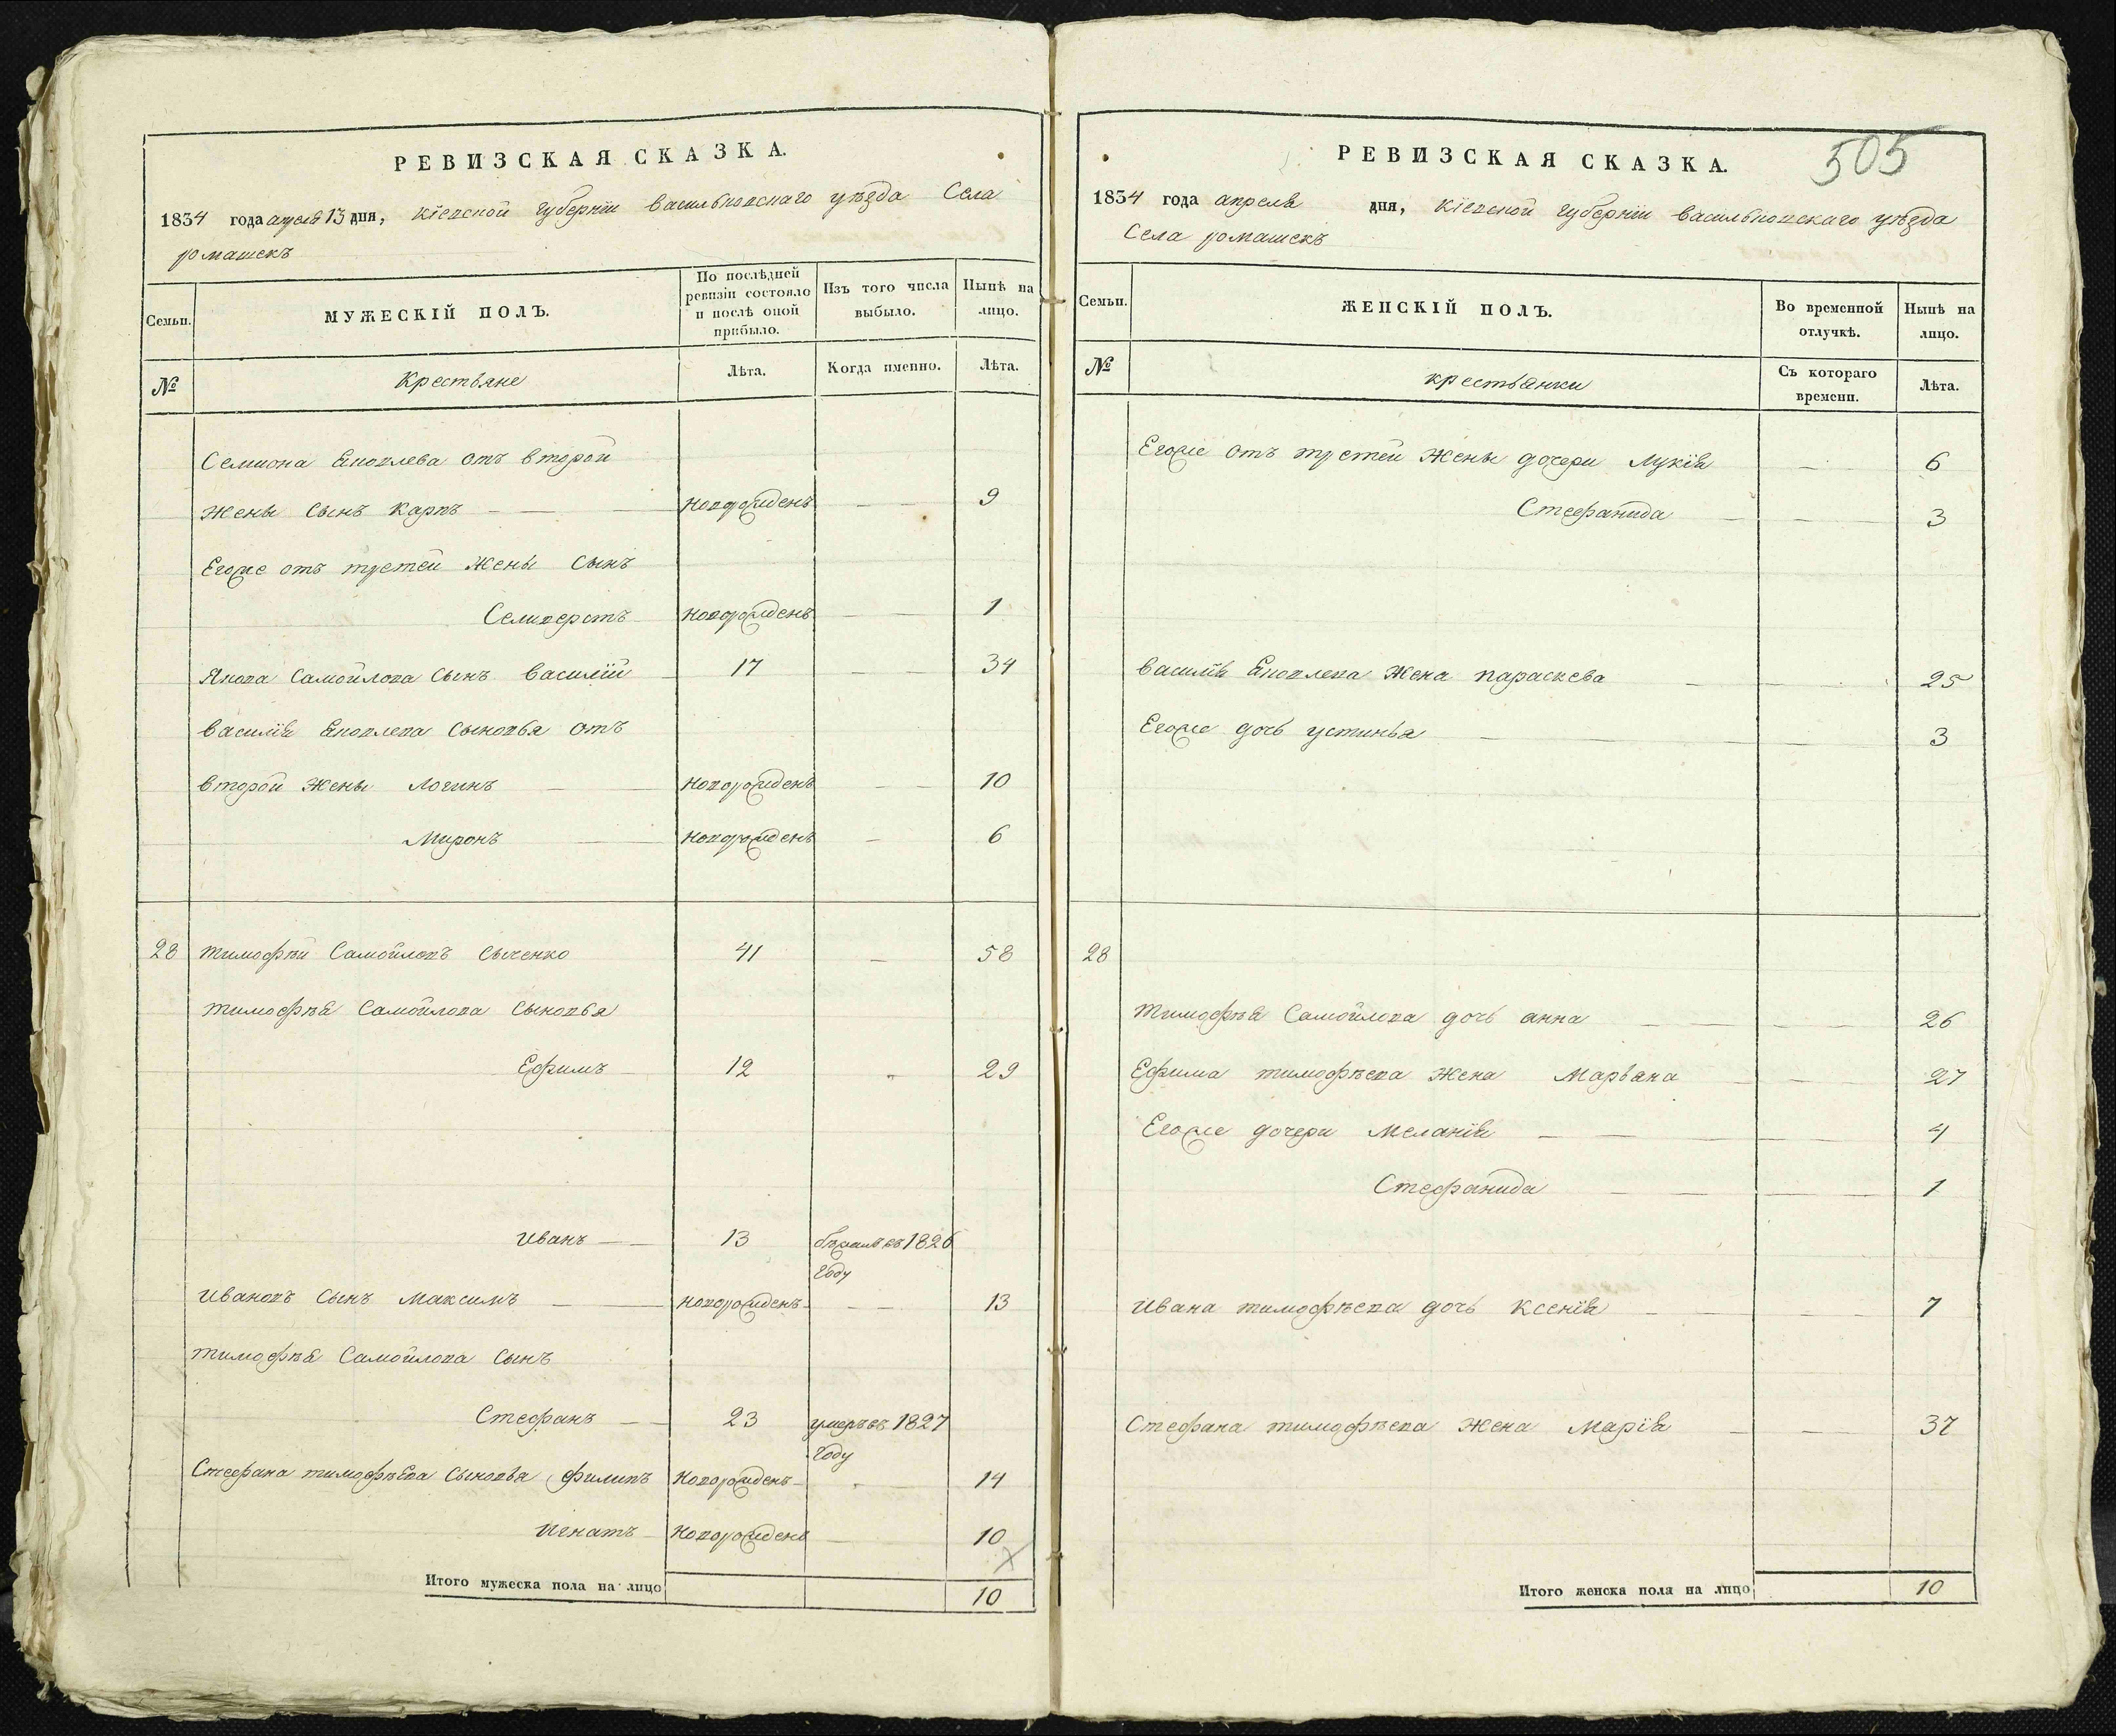 РЕВИЗСКАЯ СКАЗКА.
1834 года апреля 13 дня, Кіевской губерніи васильковскаго уѣзда Села
ромашекъ
Семьи.
МУЖЕСКІЙ ПОЛЪ.
По послѣдней ревизіи состояло и послѣ оной прибыло.
Изъ того числа выбыло.
Нынѣ на лицо.
№
Крестьяне
Лѣта.
Когда именно.
Лѣта.
Семиона Яковлева отъ второй
жены сынъ Карпъ — новорожденъ — 9
Егоже отъ третей жены сынъ
Селиверстъ новорожденъ — 1
Якова Самойлова сынъ василій 17 — 34
василія Яковлева сыновья отъ
второй жены Логинъ — новорожденъ — 10
Миронъ — новорожденъ — 6
28 тимофѣй Самойловъ Сыченко 41 — 58
тимофѣя Самойлова сыновья
Ефимъ 12 — 29
Иванъ — 13 1826
году
Ивановъ сынъ Максимъ — новорожденъ — 13
тимофѣя Самойлова сынъ
Стефанъ — 23 умеръ въ 1827
году
Стефана тимофѣева сыновья филипъ новорожденъ — 14
Игнатъ новорожденъ — 10
Итого мужеска пола на лицо 10
505
РЕВИЗСКАЯ СКАЗКА.
1834 года апреля дня, Кіевской губерніи васильковскаго уѣзда
Села ромашекъ
Семьи.
ЖЕНСКІЙ ПОЛЪ.
Во временной отлучкѣ.
Нынѣ на лицо.
№
крестьянки
Съ котораго времени.
Лѣта.
Егоже отъ третей жены дочери Лукія — 6
Стефанида — 3
василія Яковлева жена параскева — 25
Егоже дочь устинья — 3
28
Тимофѣя Самойлова дочь анна — 26
Ефима тимофѣева жена Марьяна — 27
Егоже дочери Меланія — 4
Стефанида — 1
Ивана тимофѣева дочь Ксенія — 7
Стефана тимофѣева жена Марія — 37
Итого женска пола на лицо 10